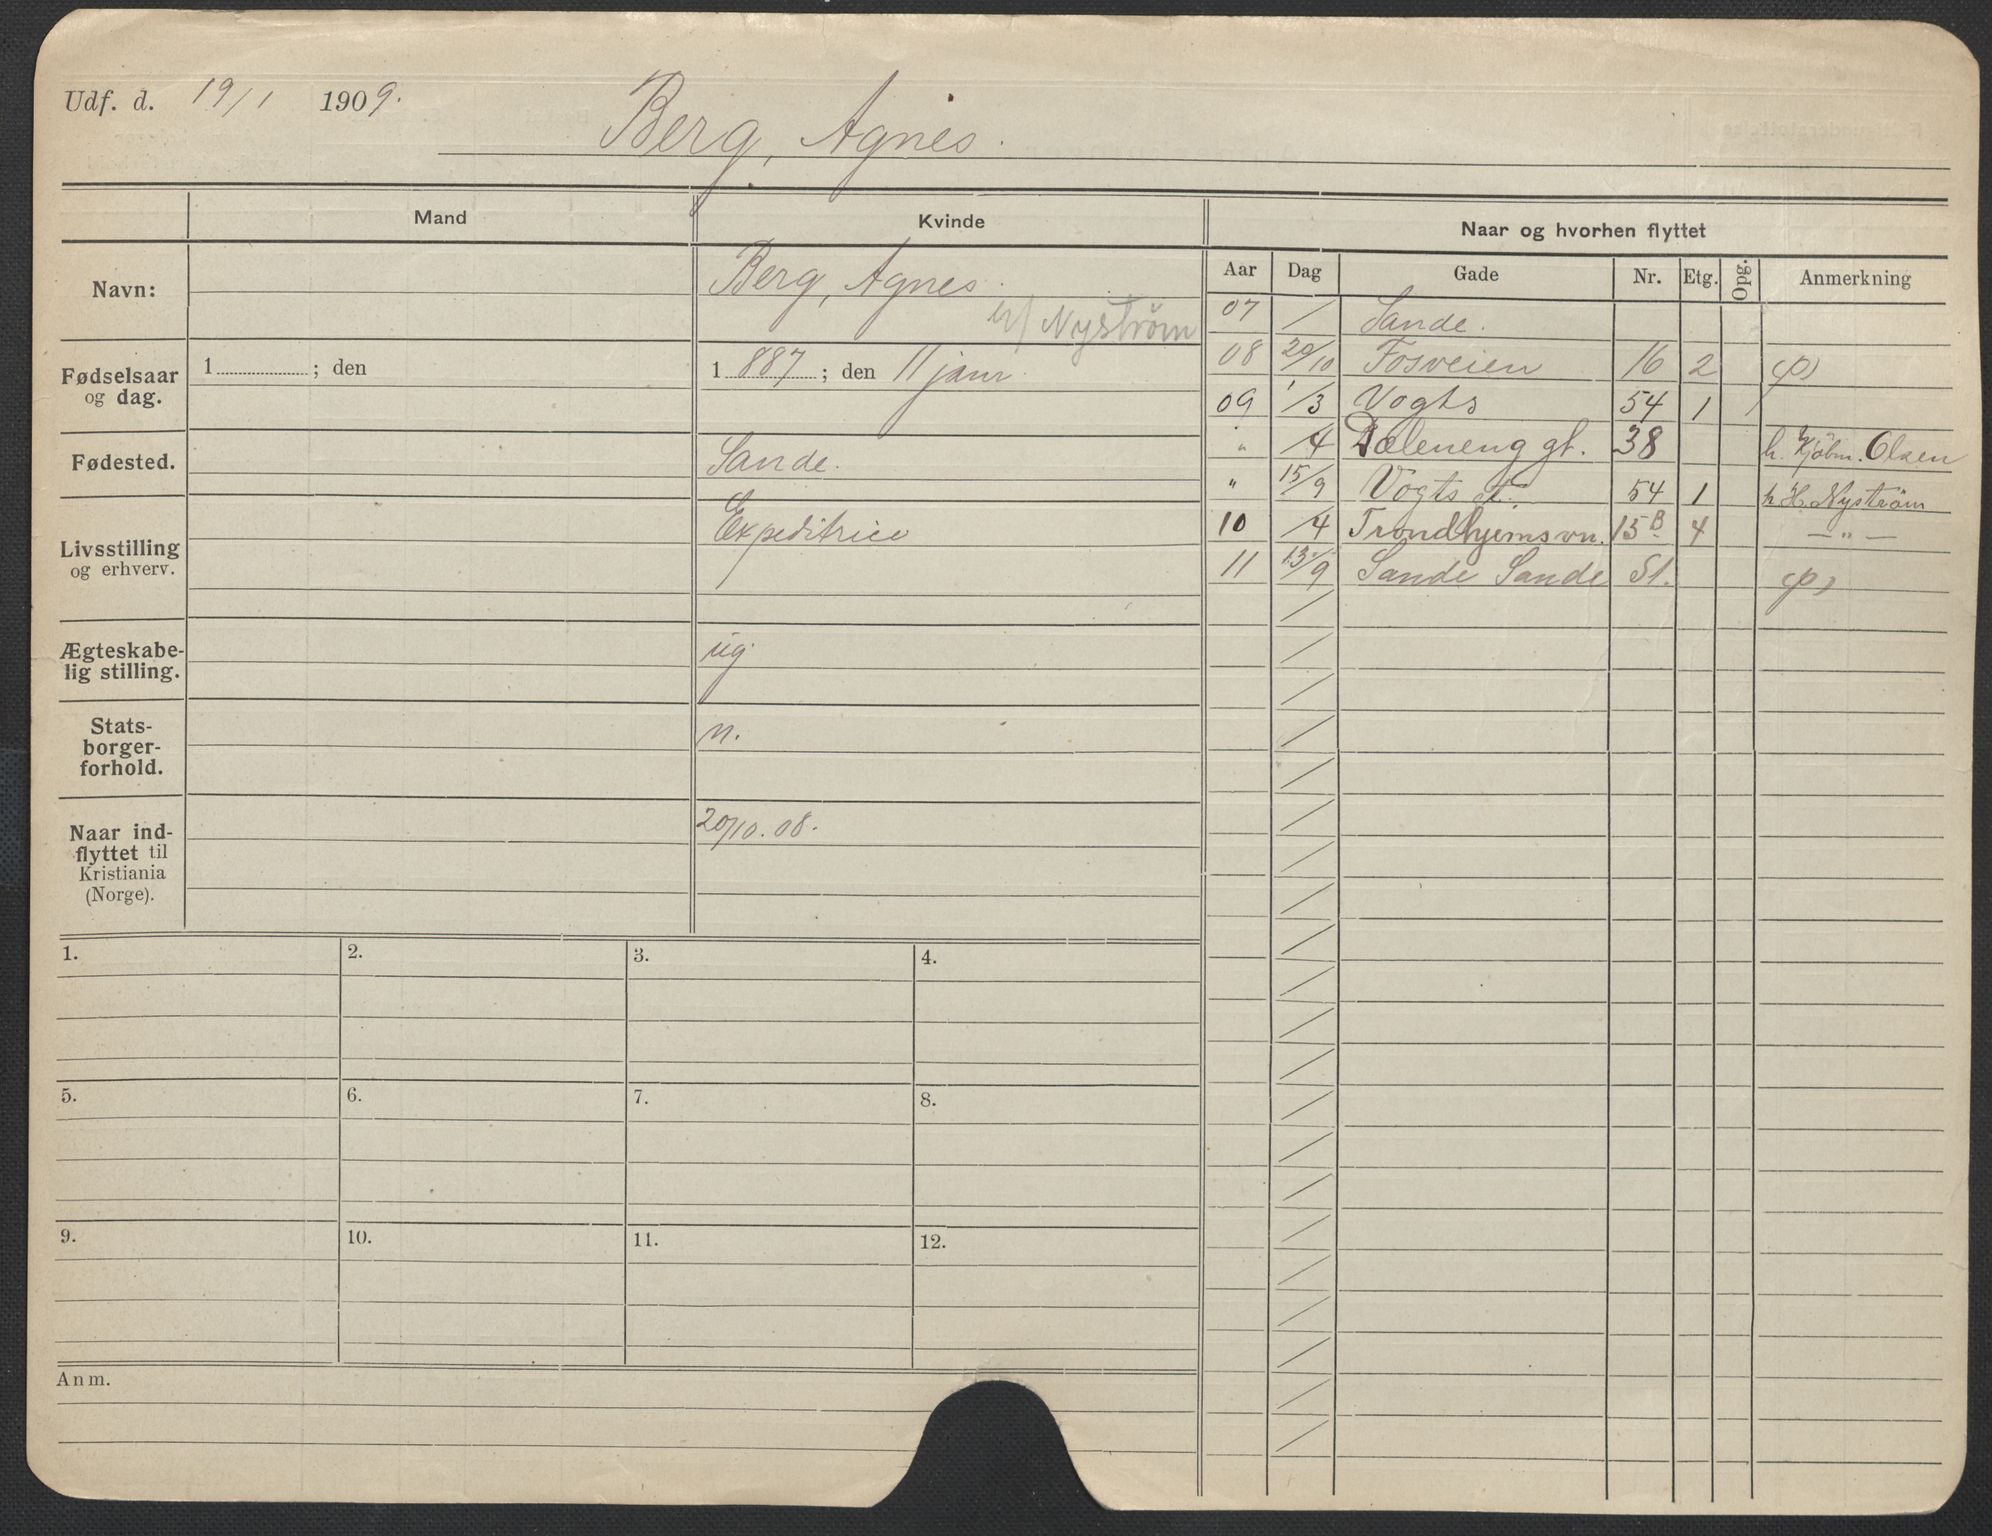 Udf. d. 19/1 1909.
Berg, Agnes.
Mand
Kvinde
Naar og hvorhen flyttet
Navn:
Berg, Agnes.
Nyström
Fødselsaar og dag.
1 ; den
1 887 ; den 11 janr
Fødested.
Sande.
Livsstilling og erhverv.
Expeditrice
Ægteskabe-
lig stilling.
ug
Stats-
borger-
forhold.
n.
Naar ind-
flyttet til
Kristiania
(Norge).
20/10.08.
Aar Dag Gade Nr. Etg. Opg. Anmerkning
07 / Sande.
08 20/10 Fosveien 16 2
09 1/3 Vogts 54 1
" /4 Dæleneng gt. 38 h. Kjöbm. Olsen
" 15/9 Vogts gt. 54 1 h. H. Nyström
10 /4 Trondhjemsvn. 15B 4 — " —
11 13/9 Sande Sande St.
1. 2. 3. 4.
5. 6. 7. 8.
9. 10. 11. 12.
Anm.